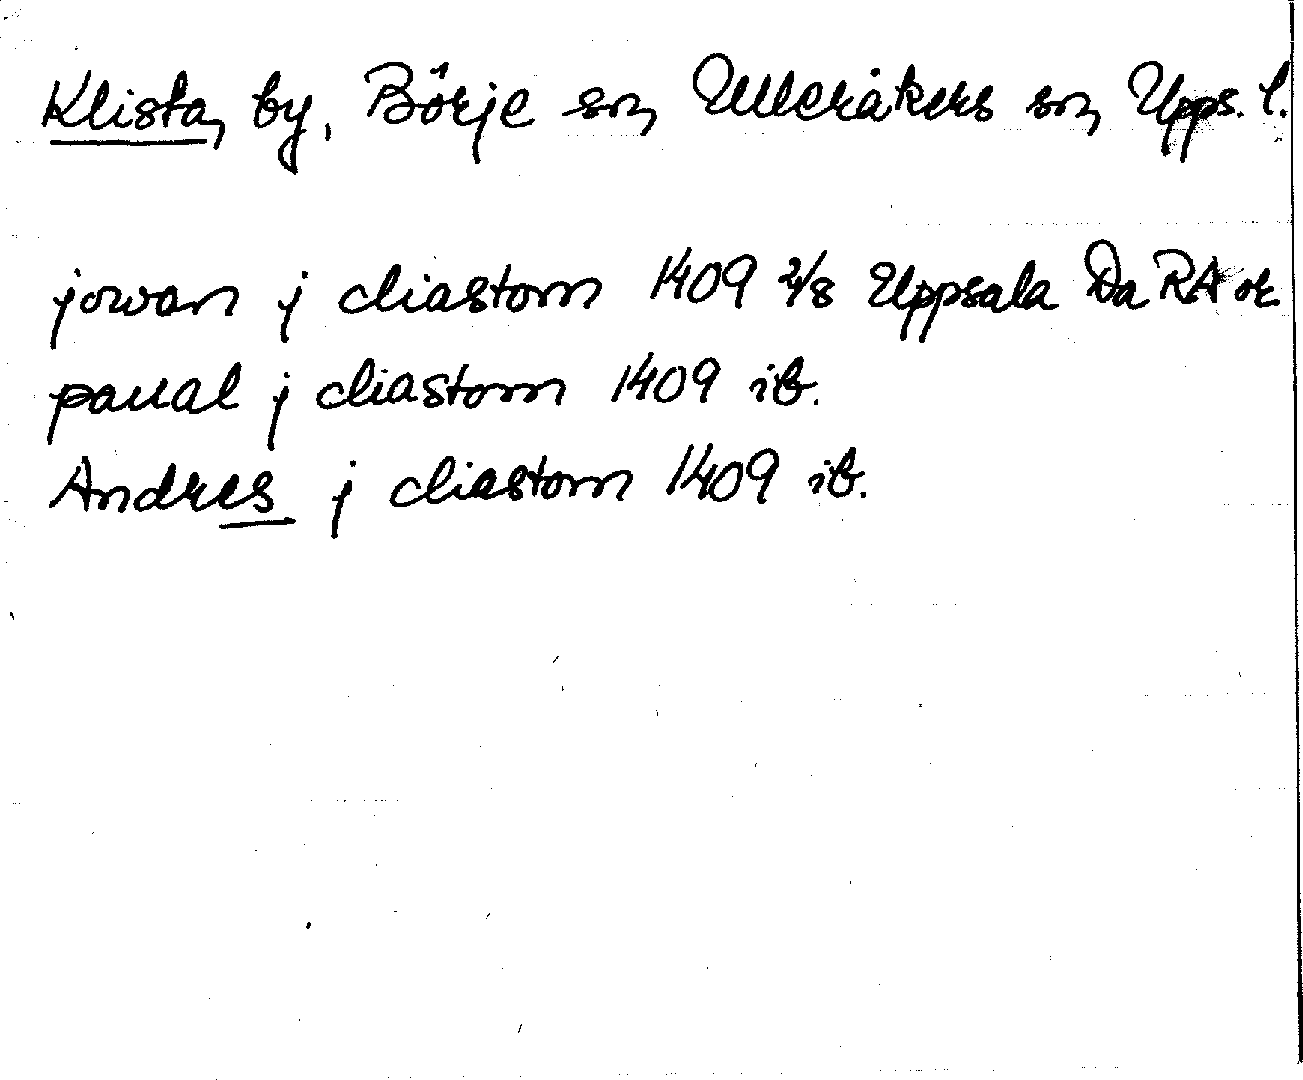 Klista, by, Börje sn, Ulleråkers sn, Upps. l.
jowan j cliastom 1409 2/8 Uppsala Da RA or
paual j cliastom 1409 ib.
Andres j cliastom 1409 ib.